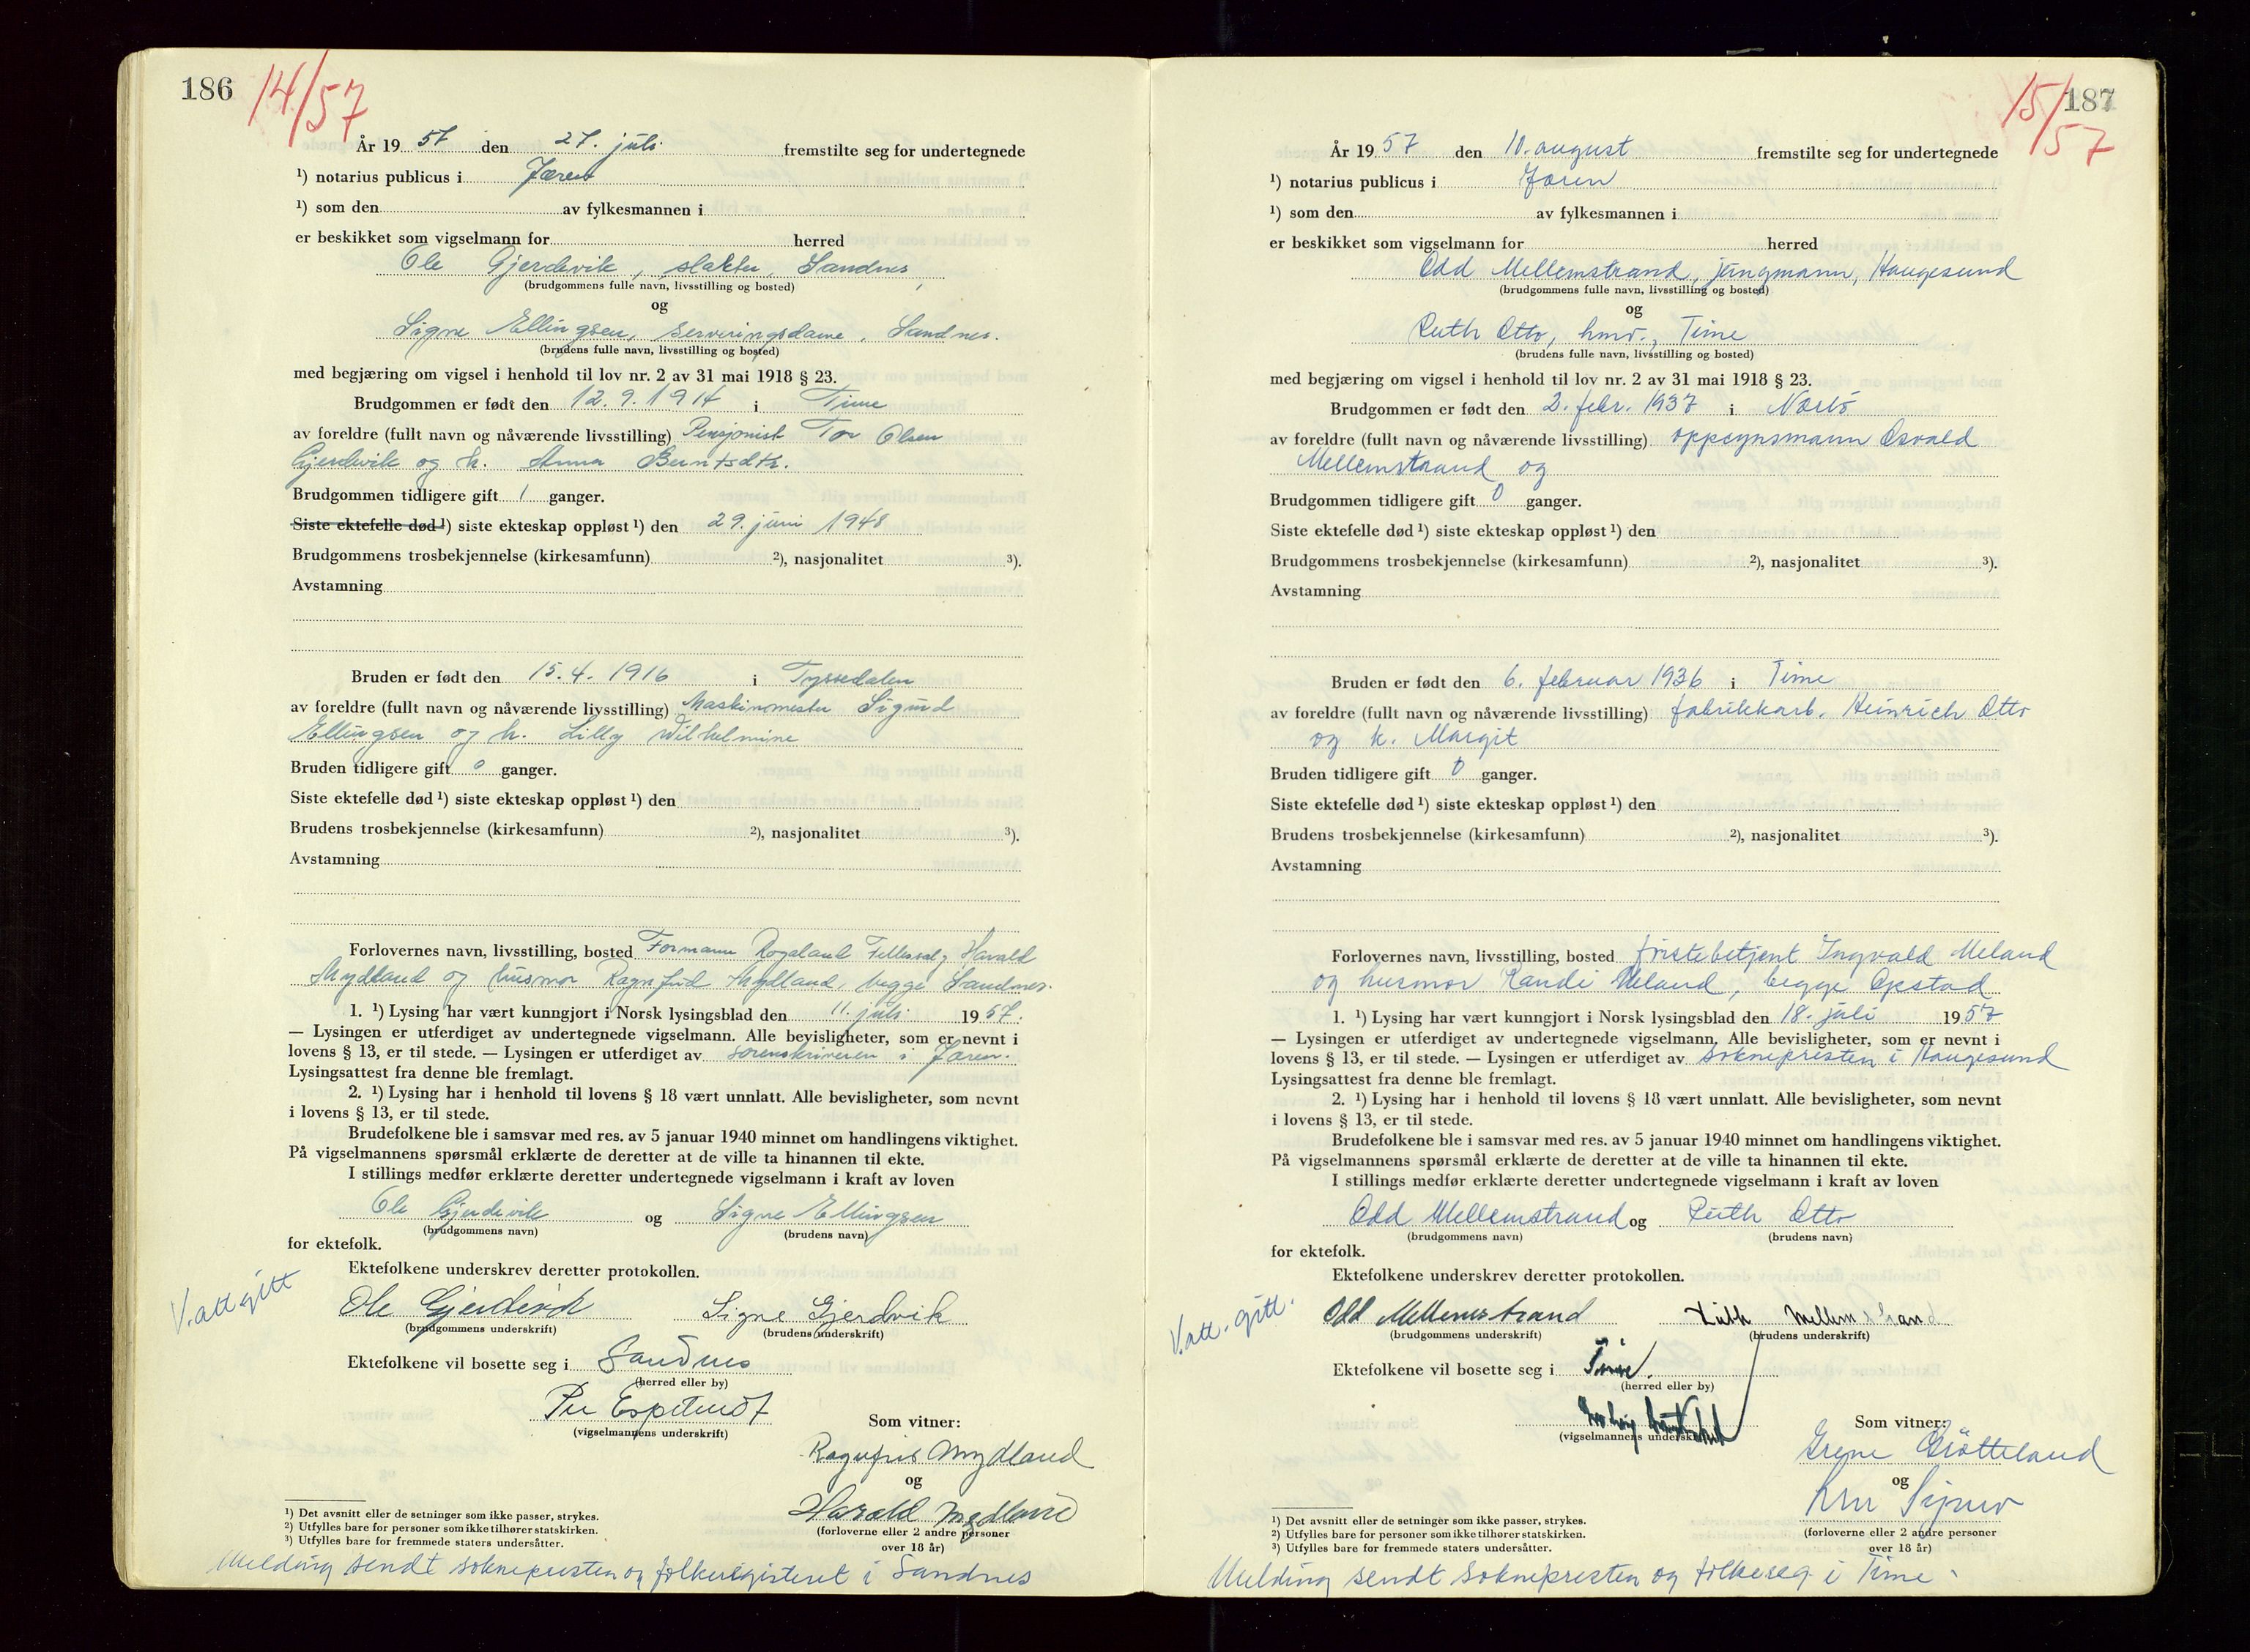 186 14/57
År 19 57 den 27. juli fremstilte seg for undertegnede
¹) notarius publicus i Jæren
¹) som den av fylkesmannen i
er beskikket som vigselmann for herred
Ole Gjerdevik, slakter, Sandnes,
(brudgommens fulle navn, livsstilling og bosted)
og
Signe Ellingsen, serveringsdame, Sandnes.
(brudens fulle navn, livsstilling og bosted)
med begjæring om vigsel i henhold til lov nr. 2 av 31 mai 1918 § 23.
Brudgommen er født den 12.9.1914 i Time
av foreldre (fullt navn og nåværende livsstilling) Pensjonist Tor Olsen
Gjerdevik og h. Anna Berntsdtr.
Brudgommen tidligere gift 1 ganger.
Siste ektefelle død ¹) siste ekteskap oppløst ¹) den 29. juni 1948
Brudgommens trosbekjennelse (kirkesamfunn) ²), nasjonalitet ³).
Avstamning
Bruden er født den 15.4.1916 i Tyssedalen
av foreldre (fullt navn og nåværende livsstilling) Maskinmester Sigurd
Ellingsen og h. Lilly Wilhelmine
Bruden tidligere gift 0 ganger.
Siste ektefelle død ¹) siste ekteskap oppløst ¹) den
Brudens trosbekjennelse (kirkesamfunn) ²), nasjonalitet ³).
Avstamning
Forlovernes navn, livsstilling, bosted Formann Rogaland Fellessalg Harald
Mydland og husmor Ragnfrid Mydland, begge Sandnes.
1. ¹) Lysing har vært kunngjort i Norsk lysingsblad den 11. juli 19 57.
— Lysingen er utferdiget av undertegnede vigselmann. Alle bevisligheter, som er nevnt i
lovens § 13, er til stede. — Lysingen er utferdiget av sorenskriveren i Jæren.
Lysingsattest fra denne ble fremlagt.
2. ¹) Lysing har i henhold til lovens § 18 vært unnlatt. Alle bevisligheter, som nevnt
i lovens § 13, er til stede.
Brudefolkene ble i samsvar med res. av 5 januar 1940 minnet om handlingens viktighet.
På vigselmannens spørsmål erklærte de deretter at de ville ta hinannen til ekte.
I stillings medfør erklærte deretter undertegnede vigselmann i kraft av loven
Ole Gjerdevik og Signe Ellingsen
(brudgommens navn) (brudens navn)
for ektefolk.
Ektefolkene underskrev deretter protokollen.
V. att gitt
Ole Gjerdevik Signe Gjerdvik
(brudgommens underskrift) (brudens underskrift)
Ektefolkene vil bosette seg i Sandnes
(herred eller by)
Per
(vigselmannens underskrift)
Som vitner:
Ragnfrid Mydland
og
Harald Mydland
(forloverne eller 2 andre personer
over 18 år)
¹) Det avsnitt eller de setninger som ikke passer, strykes.
²) Utfylles bare for personer som ikke tilhører statskirken.
³) Utfylles bare for fremmede staters undersåtter.
Melding sendt soknepresten og folkeregisteret i Sandnes
15/57 187
År 19 57 den 10. august fremstilte seg for undertegnede
¹) notarius publicus i Jæren
¹) som den av fylkesmannen i
er beskikket som vigselmann for herred
Odd Mellemstrand, jungmann, Haugesund
(brudgommens fulle navn, livsstilling og bosted)
og
Ruth Otto, hmv., Time
(brudens fulle navn, livsstilling og bosted)
med begjæring om vigsel i henhold til lov nr. 2 av 31 mai 1918 § 23.
Brudgommen er født den 2. febr. 1937 i Nærbø
av foreldre (fullt navn og nåværende livsstilling) oppsynsmann Osvald
Mellemstrand og
Brudgommen tidligere gift 0 ganger.
Siste ektefelle død ¹) siste ekteskap oppløst ¹) den
Brudgommens trosbekjennelse (kirkesamfunn) ²), nasjonalitet ³).
Avstamning
Bruden er født den 6. februar 1936 i Time
av foreldre (fullt navn og nåværende livsstilling) fabrikkarb. Heinrich Otto
og h. Margit
Bruden tidligere gift 0 ganger.
Siste ektefelle død ¹) siste ekteskap oppløst ¹) den
Brudens trosbekjennelse (kirkesamfunn) ²), nasjonalitet ³).
Avstamning
Forlovernes navn, livsstilling, bosted Ingvald Meland
og husmor Randi Meland, begge Opstad
1. ¹) Lysing har vært kunngjort i Norsk lysingsblad den 18. juli 19 57
— Lysingen er utferdiget av undertegnede vigselmann. Alle bevisligheter, som er nevnt i
lovens § 13, er til stede. — Lysingen er utferdiget av soknepresten i Haugesund
Lysingsattest fra denne ble fremlagt.
2. ¹) Lysing har i henhold til lovens § 18 vært unnlatt. Alle bevisligheter, som nevnt
i lovens § 13, er til stede.
Brudefolkene ble i samsvar med res. av 5 januar 1940 minnet om handlingens viktighet.
På vigselmannens spørsmål erklærte de deretter at de ville ta hinannen til ekte.
I stillings medfør erklærte deretter undertegnede vigselmann i kraft av loven
Odd Mellemstrand og Ruth Otto
(brudgommens navn) (brudens navn)
for ektefolk.
Ektefolkene underskrev deretter protokollen.
V. att. gitt.
Odd Mellemstrand Ruth Mellemstrand
(brudgommens underskrift) (brudens underskrift)
Ektefolkene vil bosette seg i Time.
(herred eller by)
(vigselmannens underskrift)
Som vitner:
Grötteland
og
(forloverne eller 2 andre personer
over 18 år)
¹) Det avsnitt eller de setninger som ikke passer, strykes.
²) Utfylles bare for personer som ikke tilhører statskirken.
³) Utfylles bare for fremmede staters undersåtter.
Melding sendt soknepresten og folkereg. i Time